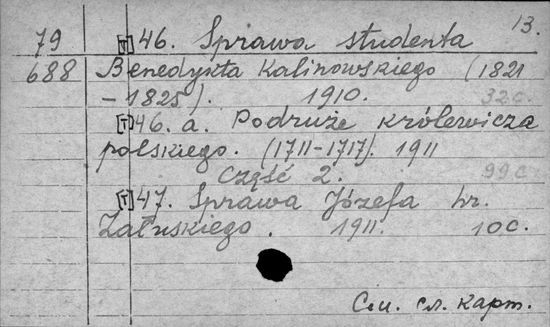 13.
79 [T] 46. Sprawa studenta
688 Benedykta Kalinowskiego (1821
- 1825). 1910. 32c.
[T] 46. a. Podruże królewicza
polskiego. (1711-1717). 1911
Część 2. 99c
[T] 47. Sprawa Józefa hr.
Załuskiego. 1911. 10c.
См. сл. карт.